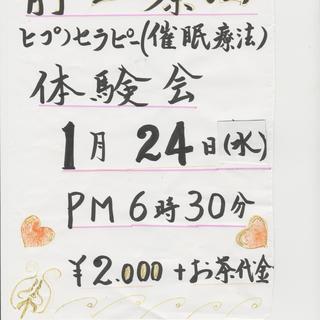 ヒプノセラピー(催眠療法)
体験会
1月24日(水)
PM6時30分
¥2.000+お茶代金